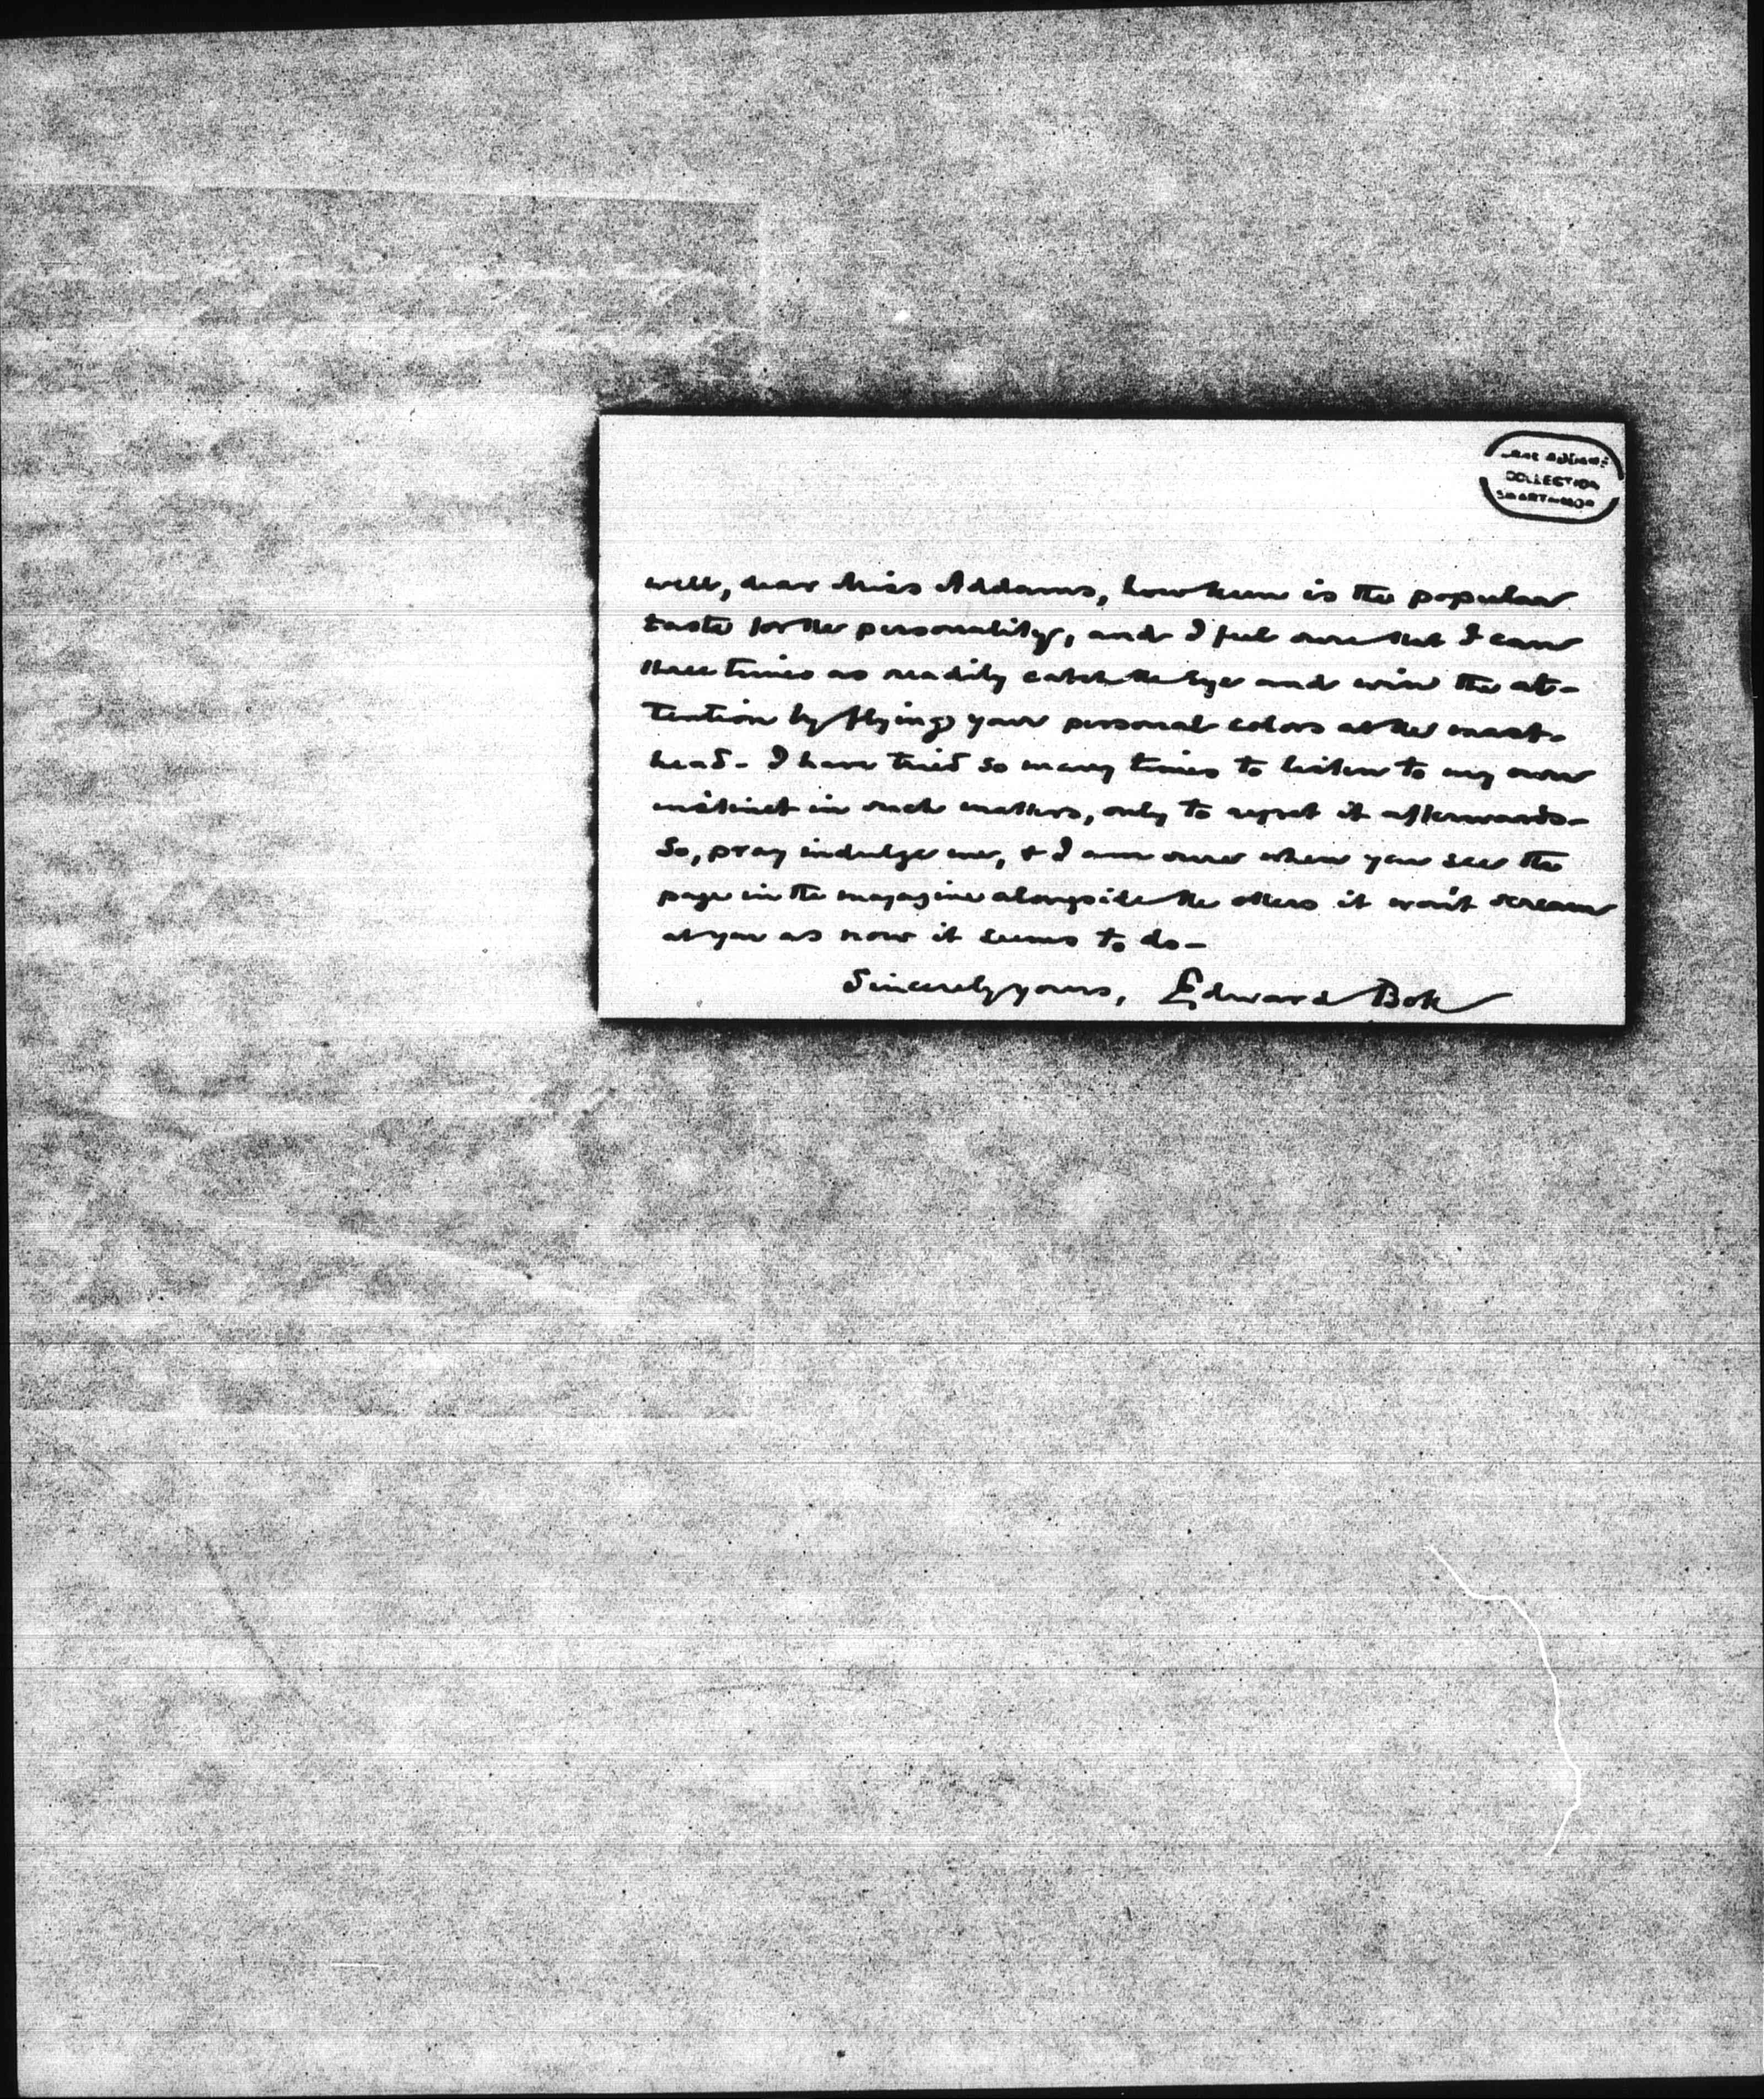 JANE ADDAMS
COLLECTION
SWARTHMORE
well, dear Miss Addams, how keen is the popular
taste for the personality, and I feel sure that I can
three times as readily catch the eye and win the at-
tention by flying your personal colors at the mast-
head - I have tried so many times to listen to my own
instinct in such matters, only to regret it afterwards -
So, pray indulge me, & I am sure when you see the
page in the magazine alongside the others it won't scream
at you as now it seems to do -
Sincerely yours, Edward Bok